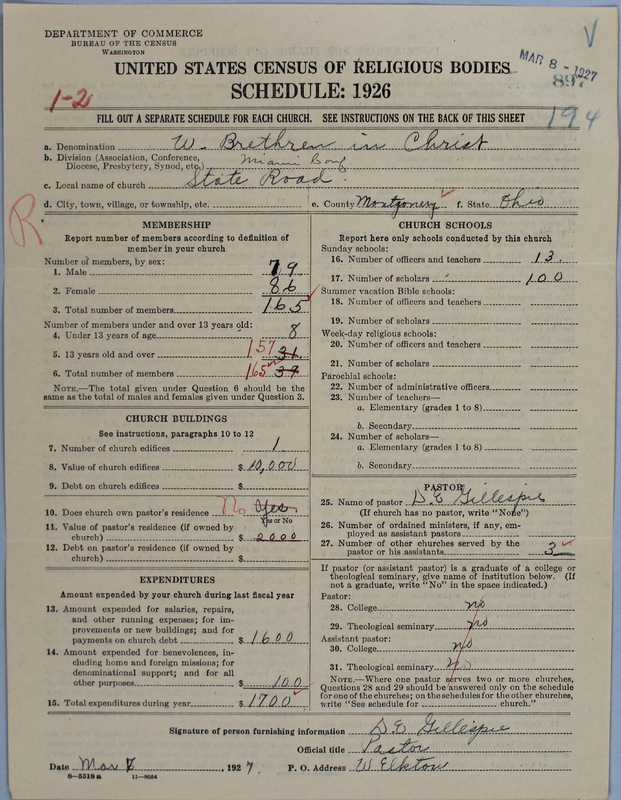 DEPARTMENT OF COMMERCE
BUREAU OF THE CENSUS
WASHINGTON
MAR 8 - 1927
897
194
UNITED STATES CENSUS OF RELIGIOUS BODIES
SCHEDULE: 1926
1-2
FILL OUT A SEPARATE SCHEDULE FOR EACH CHURCH. SEE INSTRUCTIONS ON THE BACK OF THIS SHEET
a. Denomination W. Brethren in Christ
b. Division (Association, Conference, Diocese, Presbytery, Synod, etc.) Miami Conf
c. Local name of church State Road.
d. City, town, village, or township, etc.
e. County Montgomery f. State Ohio
R
MEMBERSHIP
Report number of members according to definition of
member in your church
Number of members, by sex:
1. Male 79
2. Female 86
3. Total number of members 165
Number of members under and over 13 years old:
4. Under 13 years of age 8
5. 13 years old and over 157 31
6. Total number of members 165 39
NOTE.—The total given under Question 6 should be the
same as the total of males and females given under Question 3.
CHURCH BUILDINGS
See instructions, paragraphs 10 to 12
7. Number of church edifices 1
8. Value of church edifices $ 10,000
9. Debt on church edifices $
10. Does church own pastor's residence No Yes
Yes or No
11. Value of pastor's residence (if owned by
church) $ 2000
12. Debt on pastor's residence (if owned by
church) $
EXPENDITURES
Amount expended by your church during last fiscal year
13. Amount expended for salaries, repairs,
and other running expenses; for im-
provements or new buildings; and for
payments on church debt $ 1600
14. Amount expended for benevolences, in-
cluding home and foreign missions; for
denominational support; and for all
other purposes $ 100
15. Total expenditures during year $ 1700
CHURCH SCHOOLS
Report here only schools conducted by this church
Sunday schools:
16. Number of officers and teachers 13.
17. Number of scholars 100
Summer vacation Bible schools:
18. Number of officers and teachers
19. Number of scholars
Week-day religious schools:
20. Number of officers and teachers
21. Number of scholars
Parochial schools:
22. Number of administrative officers
23. Number of teachers—
a. Elementary (grades 1 to 8)
b. Secondary
24. Number of scholars—
a. Elementary (grades 1 to 8)
b. Secondary
PASTOR
25. Name of pastor D. E Gillespie
(If church has no pastor, write "None")
26. Number of ordained ministers, if any, em-
ployed as assistant pastors
27. Number of other churches served by the
pastor or his assistants 3
If pastor (or assistant pastor) is a graduate of a college or
theological seminary, give name of institution below. (If
not a graduate, write "No" in the space indicated.)
Pastor:
28. College no
29. Theological seminary no
Assistant pastor:
30. College no
31. Theological seminary no
NOTE.—Where one pastor serves two or more churches,
Questions 28 and 29 should be answered only on the schedule
for one of the churches; on the schedules for the other churches,
write "See schedule for church."
Signature of person furnishing information D. E Gillespie
Official title Pastor
Date Mar 7, 1927. P. O. Address W Elkton
8-5518 a 11-9084